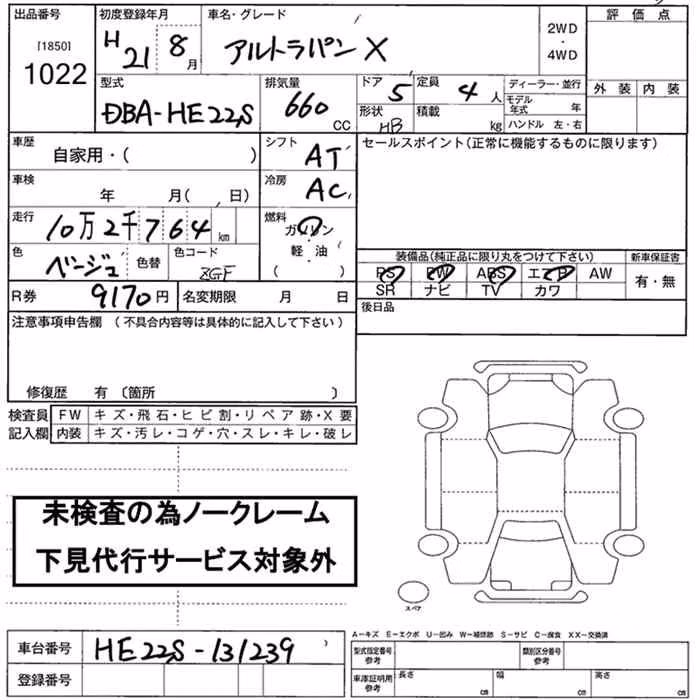 出品番号 初度登録年月 車名・グレード 評価点
[1850] H21 8月 アルトラパン X 2WD・4WD
1022
型式 排気量 ドア 5 定員 4人 ディーラー・並行 外装 内装
DBA-HE22S 660 CC 形状 HB 積載 kg モデル年式 年
ハンドル 左・右
車歴 自家用・( ) シフト AT セールスポイント(正常に機能するものに限ります)
車検 年 月( 、日) 冷房 AC
走行 10万2千764km 燃料 ガソリン・軽・油 ( )
色 ベージュ 色替 色コード ZGF 装備品(純正品に限り丸をつけて下さい) 新車保証書
PS PW ABS エアB AW 有・無
SR ナビ TV カワ
R券 9170円 名変期限 月 日 後日品
注意事項申告欄 (不具合内容等は具体的に記入して下さい)
修復歴 有 〔箇所 〕
検査員 FW キズ・飛石・ヒビ割・リペア跡・X要
記入欄 内装 キズ・汚レ・コゲ・穴・スレ・キレ・破レ
未検査の為ノークレーム
下見代行サービス対象外
スペア
A−キズ E−エクボ U−凹み W−補修跡 S−サビ C−腐食 XX−交換済
車台番号 HE22S-131239 型式指定番号 参考 類別区分番号 参考
登録番号 車庫証明用 参考 長さ cm 幅 cm 高さ cm